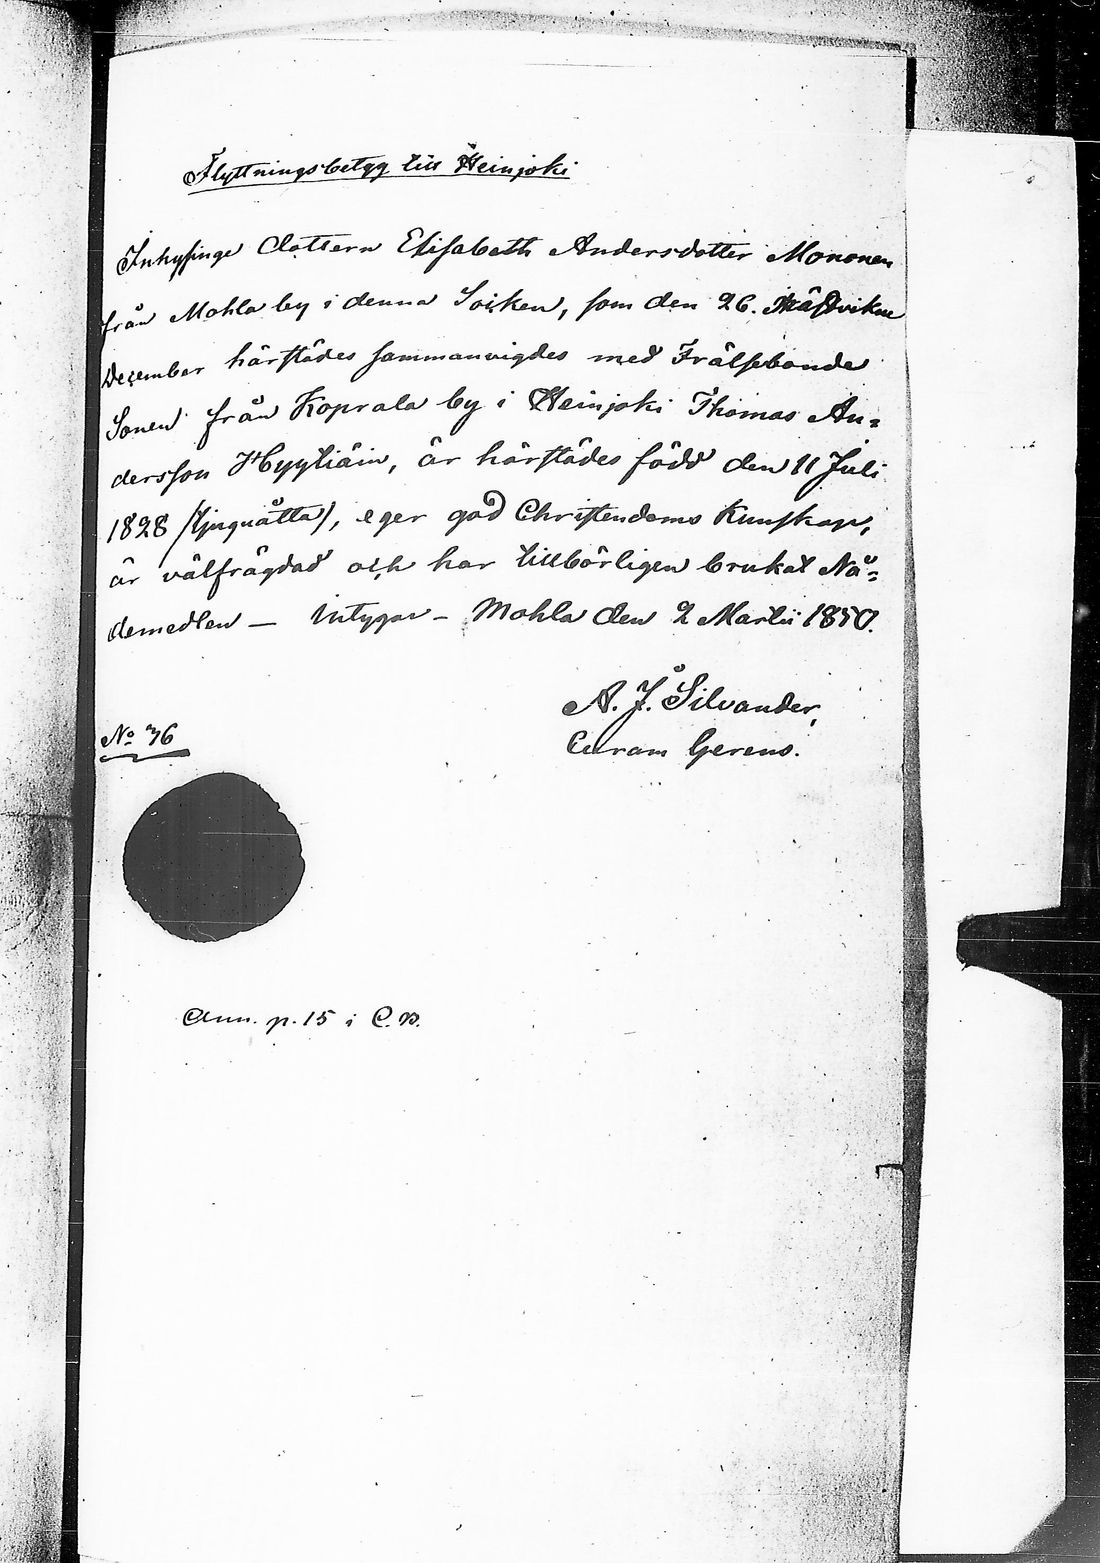 Flyttningsbetyg till Heinjoki
Inhysinge dottern Elisabeth Andersdotter Mononen
från Mohla by i denna Socken, som den 26. nästvikne
December härstädes sammanvigdes med Frälsebonde
Sonen från Koprala by i Heinjoki Thomas An=
dersson Hyytiäin, är härstädes född den 11 Juli
1828 /tjuguåtta/, eger god Christendoms Kunskap,
är välfrägdad och har tillbörligen brukat Nå=
demedlen — intygar – Mohla den 2 Martii 1850.
A. J. Silvander,
Curam Gerens.
No 36
Ann. p. 15 i C.B.